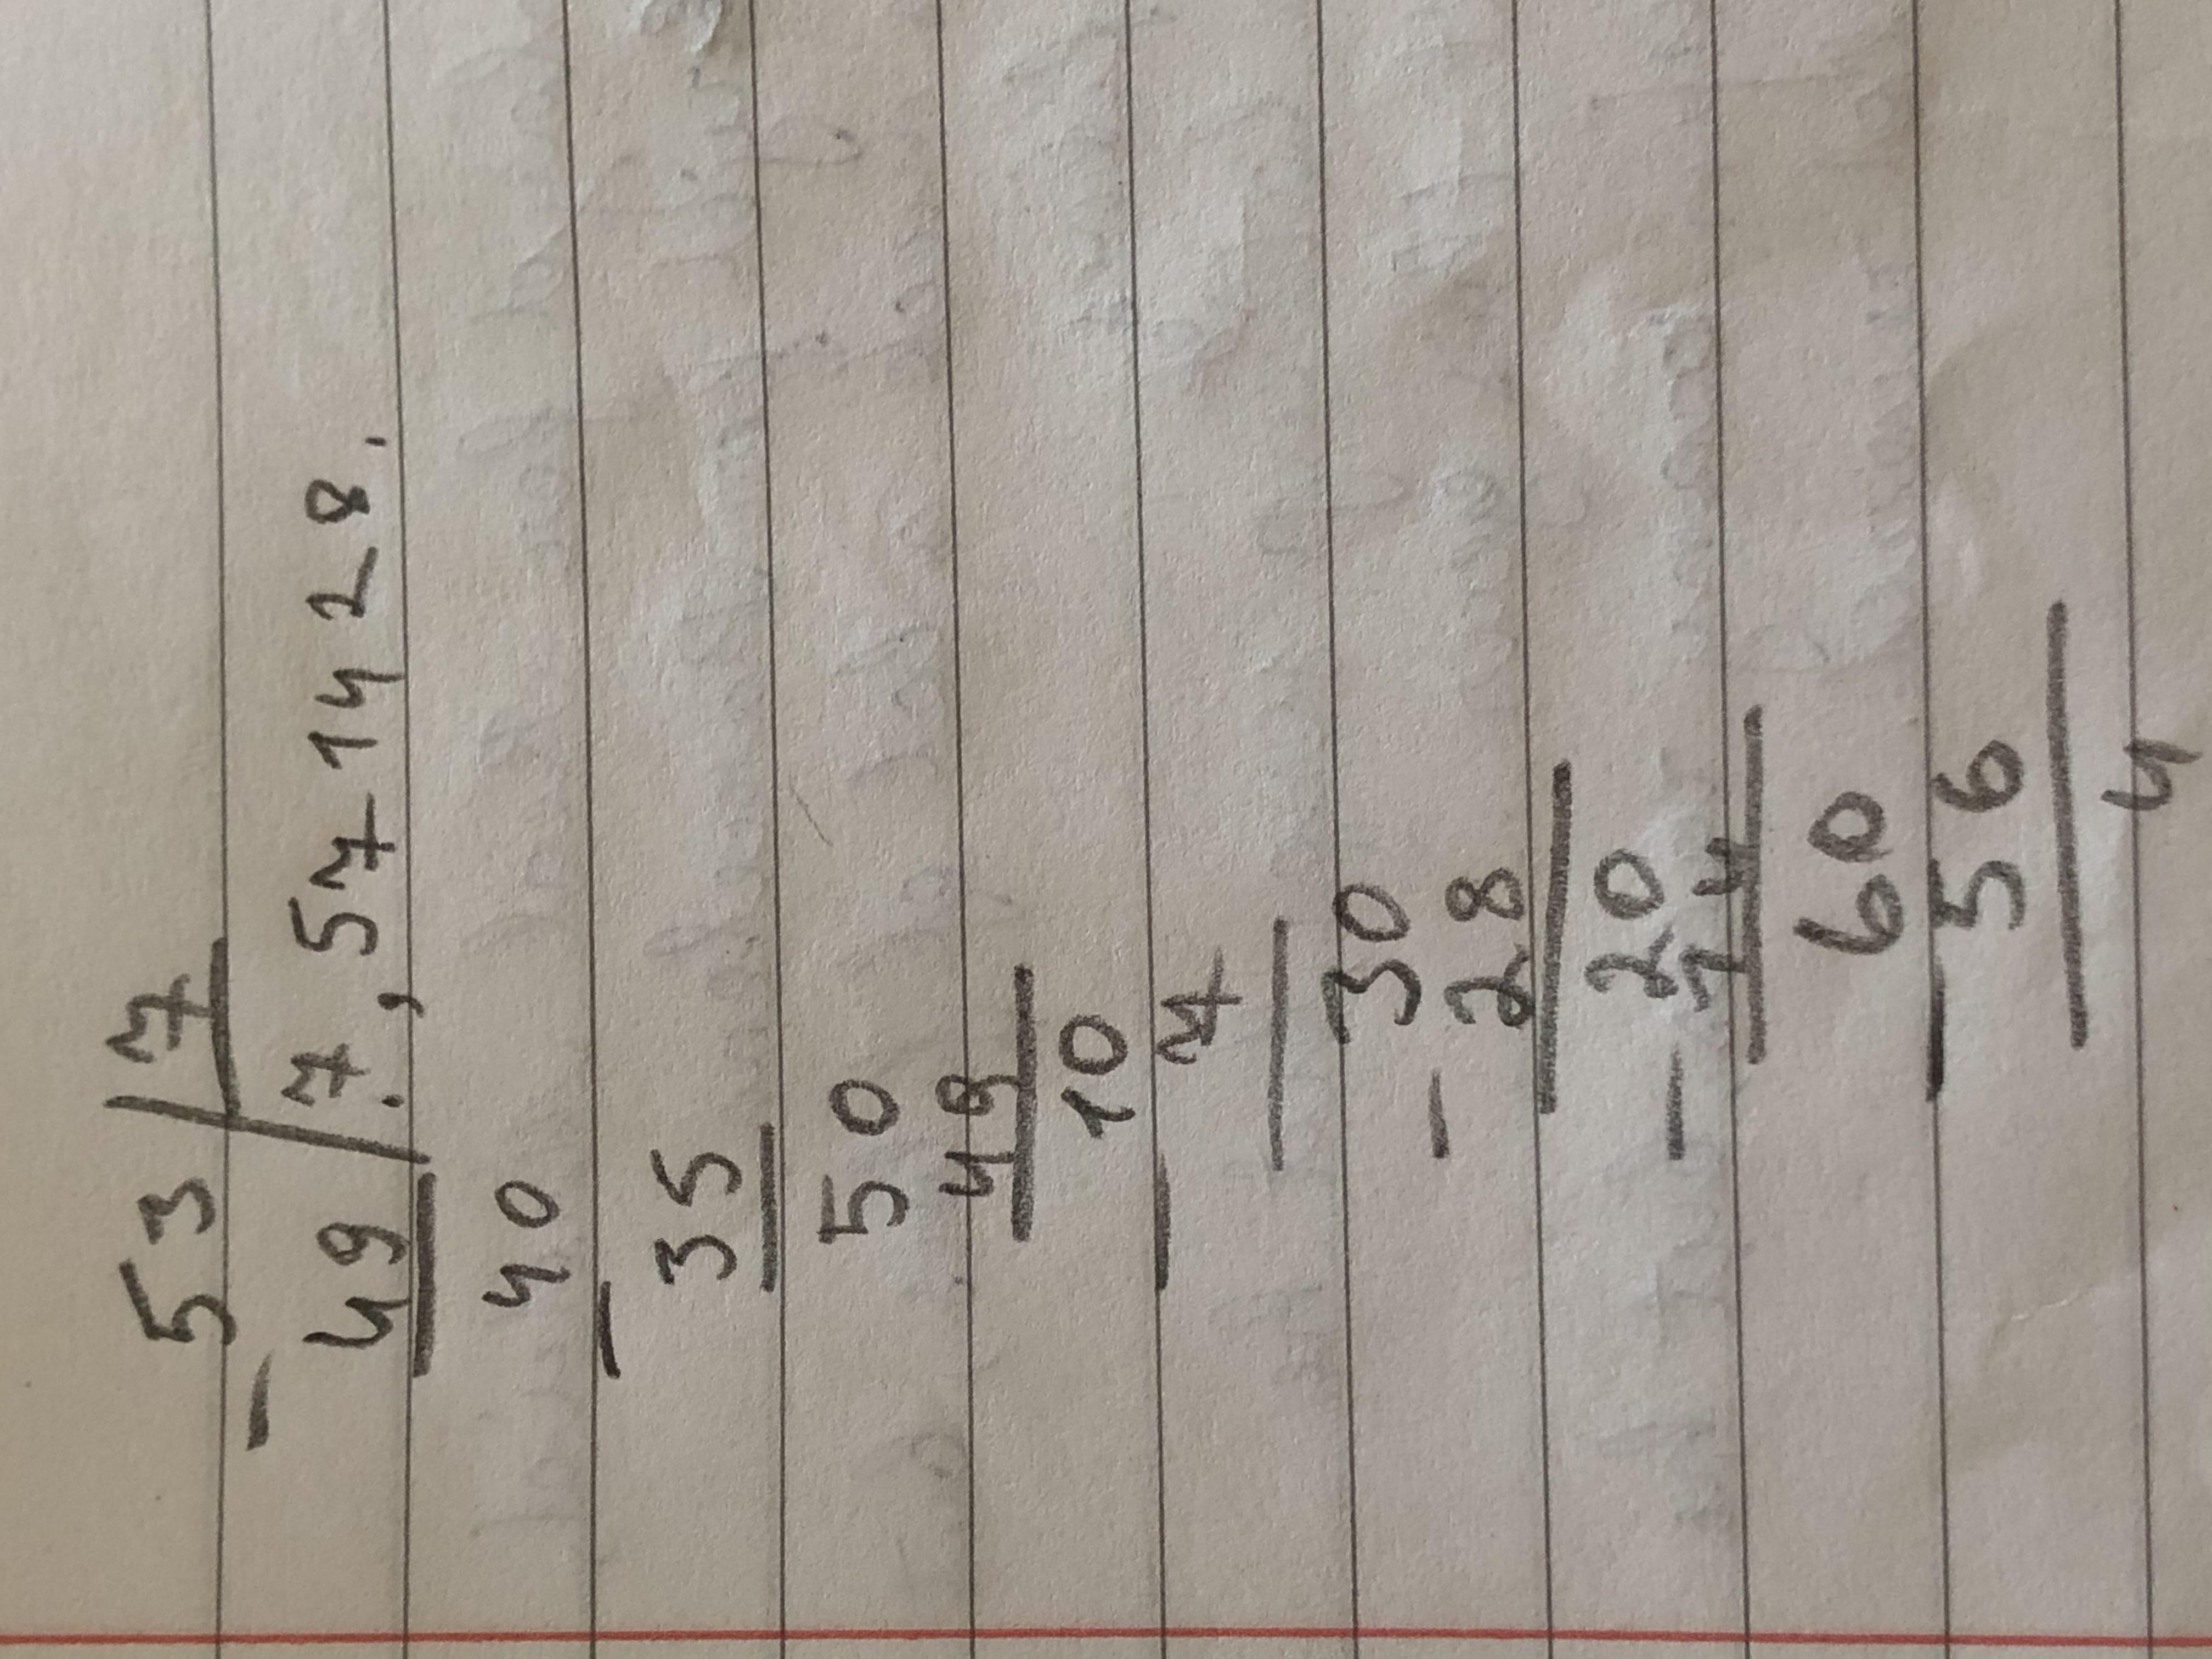 53 7
- 49 7,571428.
40
- 35
50
49
10
- 7
30
- 28
20
- 14
60
- 56
4